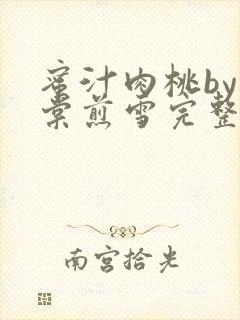 蜜汁肉桃by
棠煎雪完整
南宫拾光